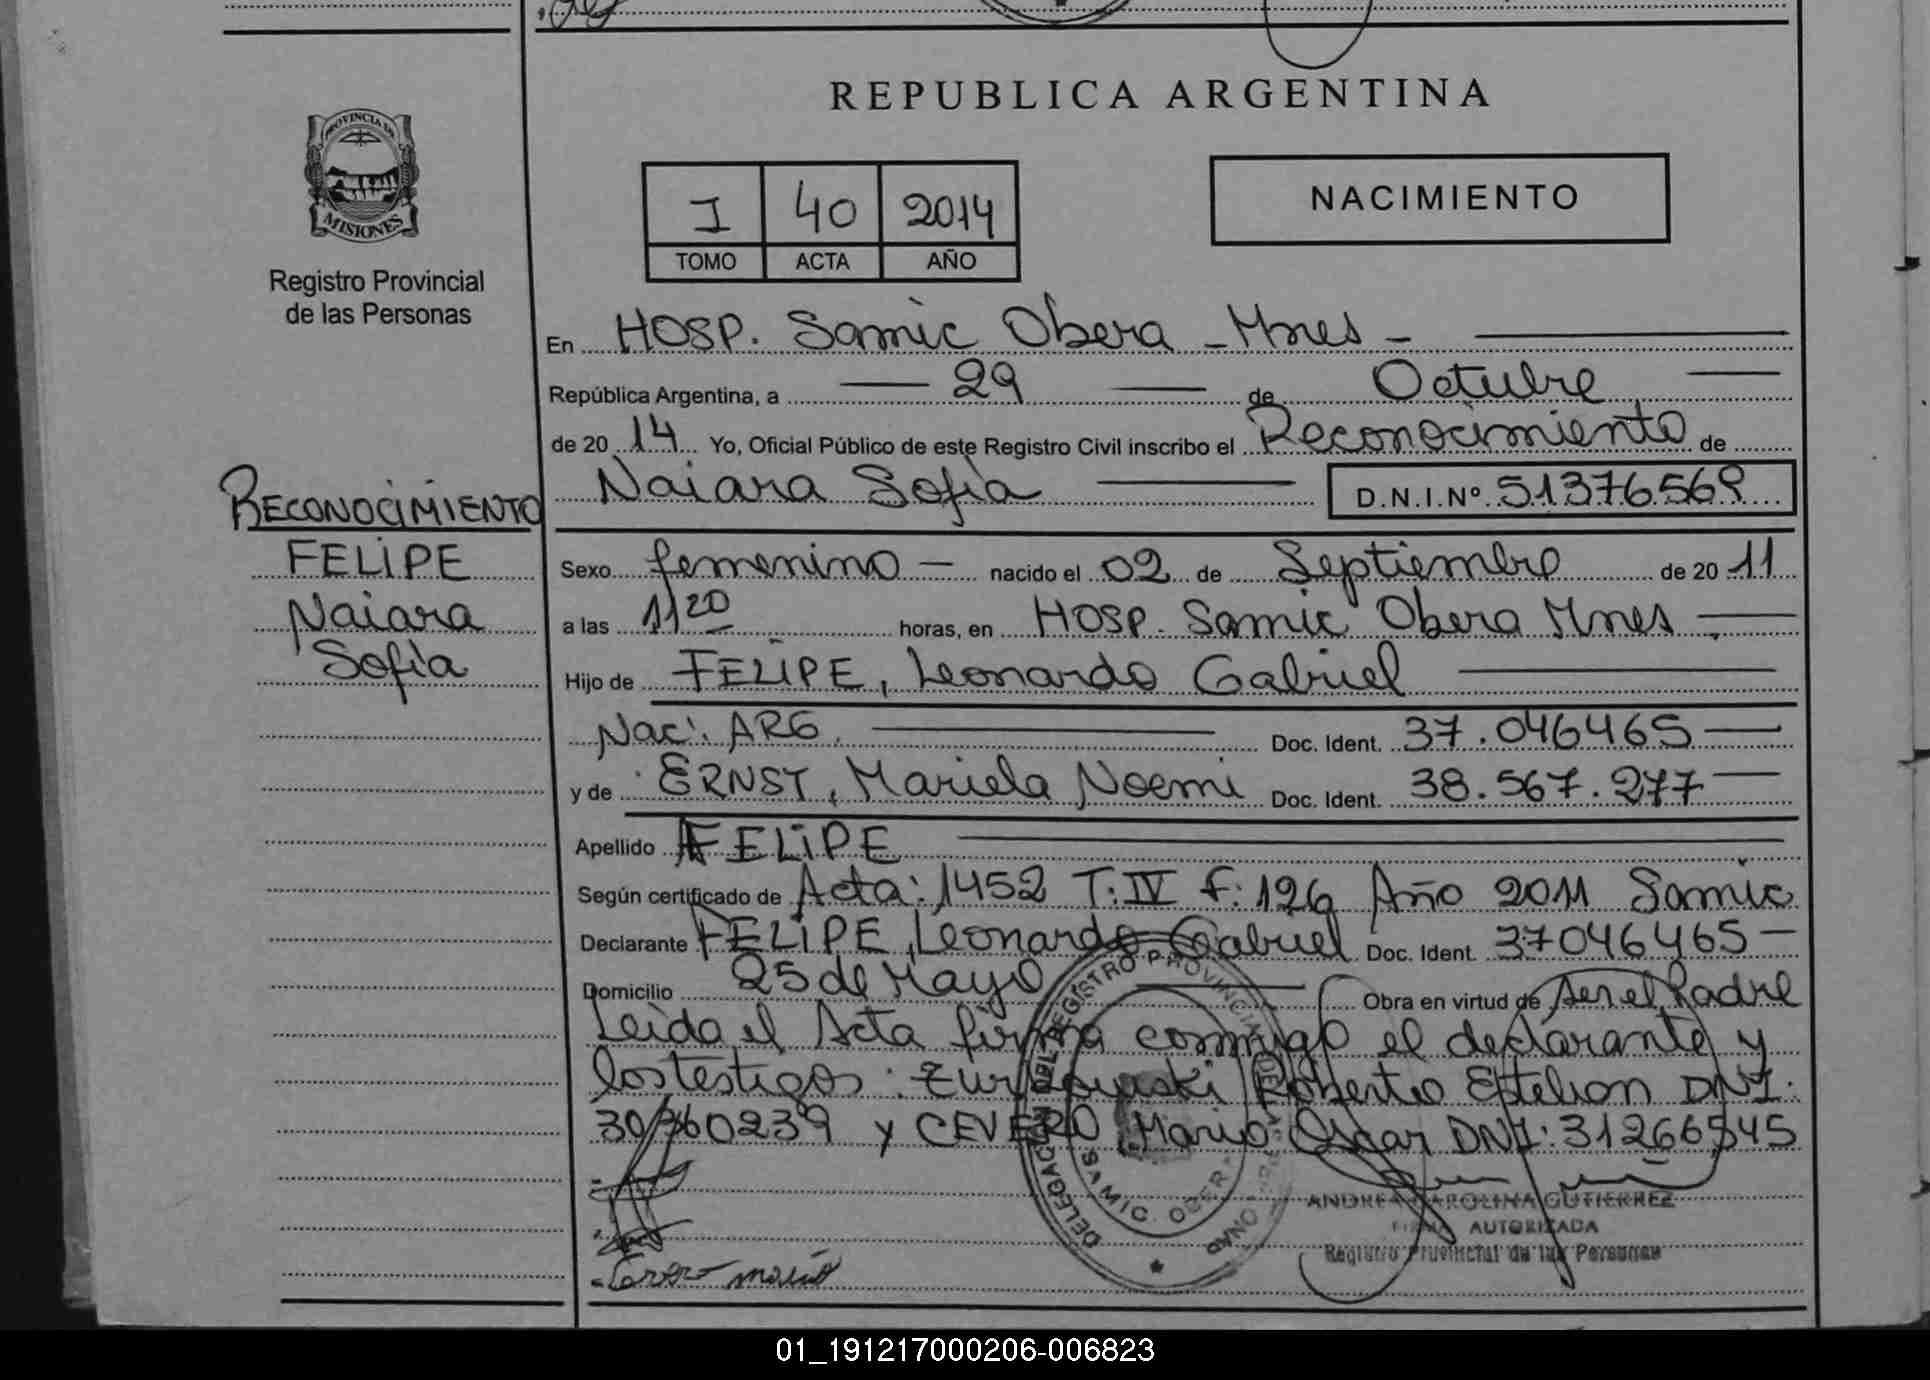 REPUBLICA ARGENTINA
PROVINCIA DE
MISIONES
Registro Provincial
de las Personas
I 40 2014
TOMO ACTA AÑO
NACIMIENTO
En HOSP. Samic Obera - Mnes -
República Argentina, a 29 de Octubre
de 2014 Yo, Oficial Público de este Registro Civil inscribo el Reconocimiento de
Naiara Sofía D.N.I.Nº 51376569
RECONOCIMIENTO
FELIPE
Naiara
Sofía
Sexo femenino - nacido el 02 de Septiembre de 2011
a las 11 20 horas, en HOSP. Samic Obera Mnes
Hijo de FELIPE, Leonardo Gabriel
Nac: ARG. Doc. Ident. 37.046465
y de ERNST, Mariela Noemi Doc. Ident. 38.567.277
Apellido FELIPE
Según certificado de Acta: 1452 T: IV F: 126 Año 2011 Samic
Declarante FELIPE, Leonardo Gabriel Doc. Ident. 37046465
Domicilio 25 de Mayo Obra en virtud de ser el Padre
Leída el Acta firma conmigo el declarante y
los testigos: Roberto Estelion DNI:
30360239 y CEVERO Mario Oscar DNI: 31266545
DELEGACION DEL REGISTRO PROVINCIAL DE LAS PERSONAS
SAMIC. OBERA
ANDREA CAROLINA GUTIERREZ
FIRMA AUTORIZADA
Registro Provincial de las Personas
Cevero mario
01_191217000206-006823